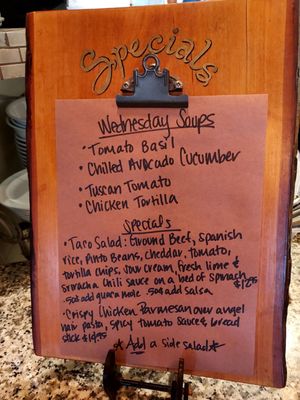 Specials
Wednesday Soups
• Tomato Basil
• Chilled Avocado Cucumber
• Tuscan Tomato
• Chicken Tortilla
Specials
• Taco Salad: Ground Beef, Spanish
rice, Pinto Beans, cheddar, tomato,
tortilla chips, sour cream, fresh lime &
Sriracha Chili Sauce on a bed of spinach
.50¢ add guacamole .50¢ add salsa $12.95
• Crispy Chicken Parmesan over angel
hair pasta, spicy Tomato Sauce & bread
stick $14.95
* Add a side salad *